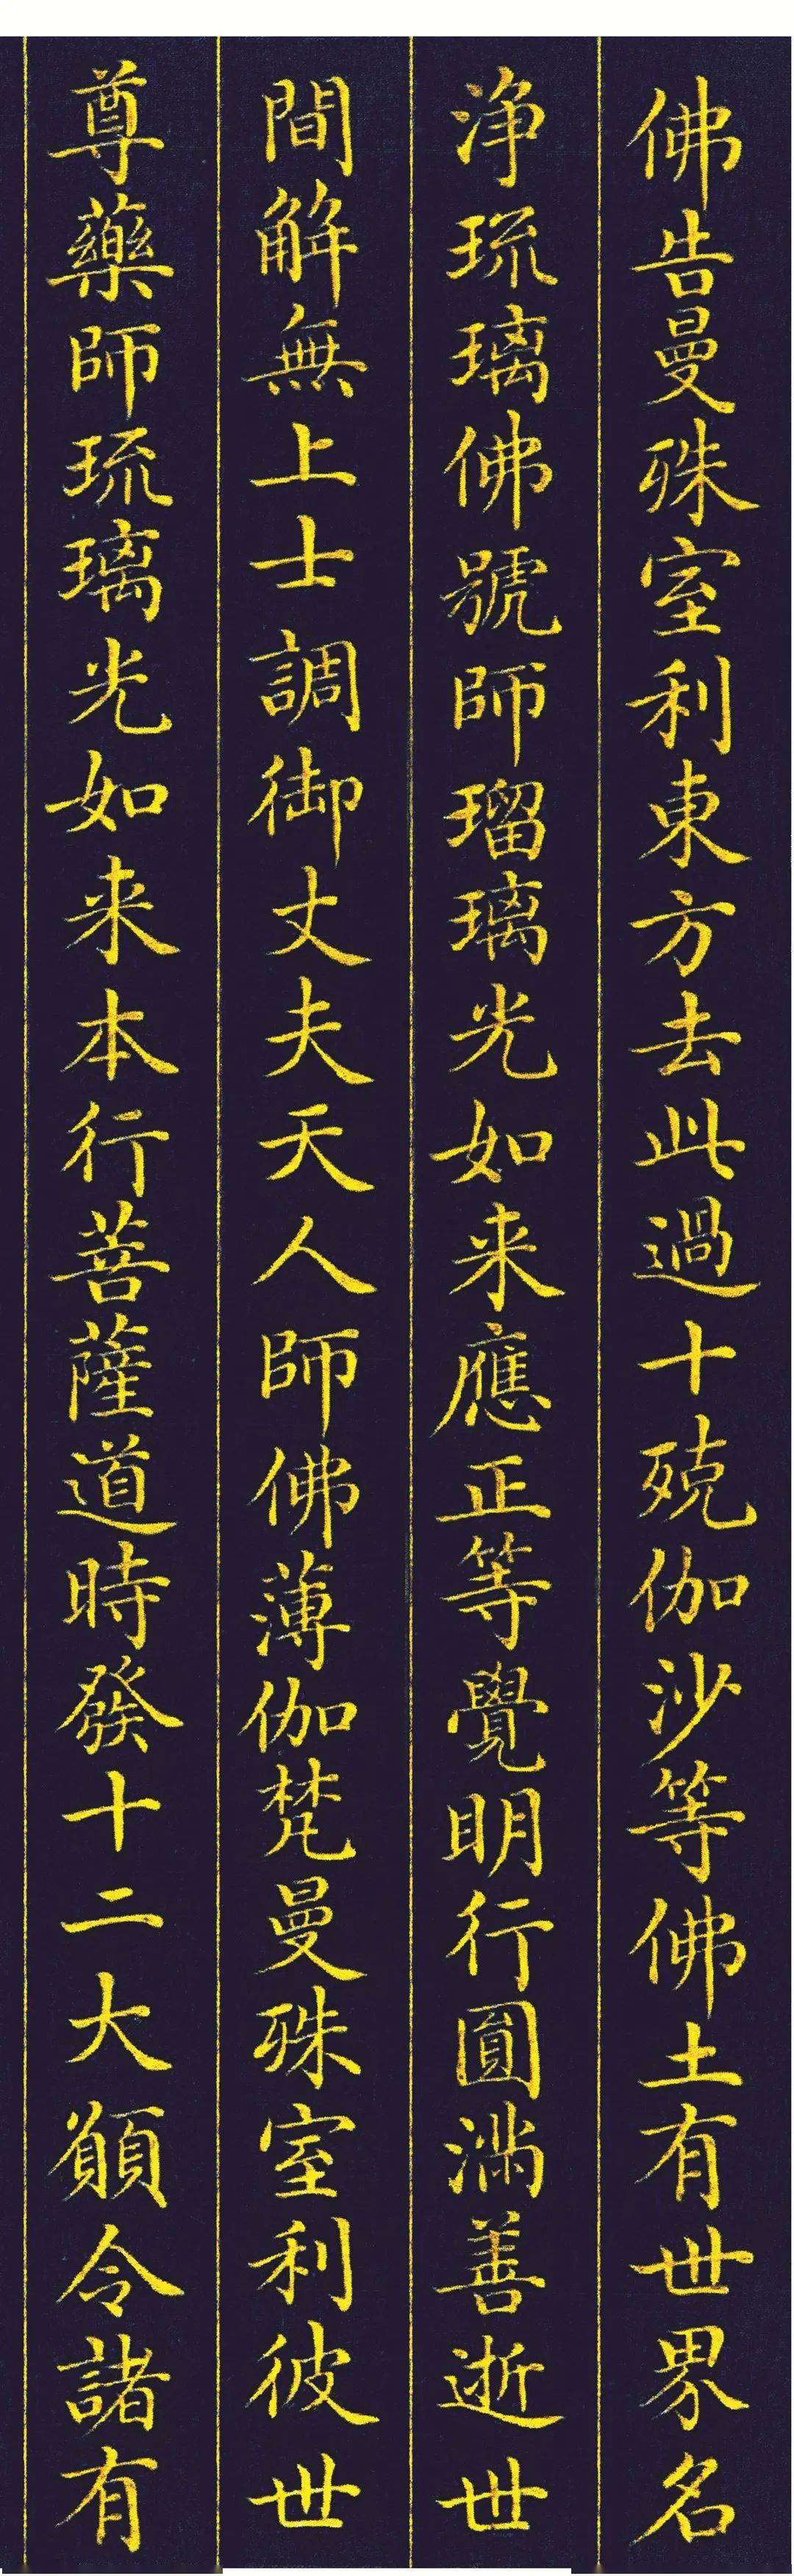 佛告曼殊室利東方去此過十殑伽沙等佛土有世界名
淨琉璃佛號師瑠璃光如来應正等覺明行圓滿善逝世
間解無上士調御丈夫天人師佛薄伽梵曼殊室利彼世
尊藥師琉璃光如来本行菩薩道時發十二大願令諸有